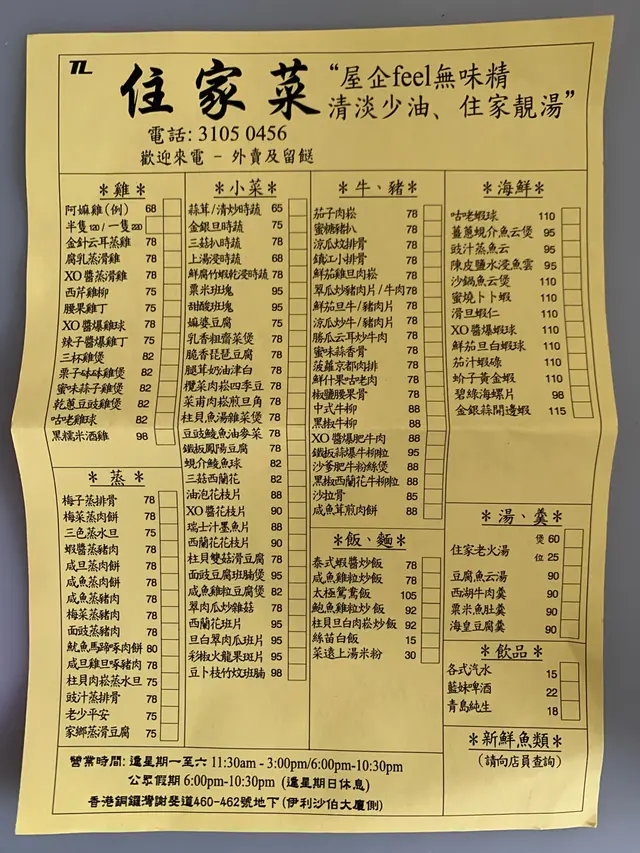 TL
住家菜
“屋企feel無味精
清淡少油、住家靚湯”
電話: 3105 0456
歡迎來電 - 外賣及留餸
＊雞＊
阿嫲雞(例) 68
半隻120/一隻220
金針云耳蒸雞 78
腐乳蒸滑雞 78
XO醬蒸滑雞 78
西芹雞柳 75
腰果雞丁 75
XO醬爆雞球 78
辣子醬爆雞丁 75
三杯雞煲 82
栗子砵砵雞煲 82
蜜味蒜子雞煲 82
乾蔥豆豉雞煲 82
咕咾雞球 82
黑糯米酒雞 98
＊蒸＊
梅子蒸排骨 78
梅菜蒸肉餅 78
三色蒸水旦 75
蝦醬蒸豬肉 78
咸旦蒸肉餅 78
咸魚蒸肉餅 78
咸魚蒸豬肉 78
梅菜蒸豬肉 78
面豉蒸豬肉 78
魷魚馬蹄啄肉餅 80
咸旦雞旦啄豬肉 78
柱貝肉崧蒸水旦 75
豉汁蒸排骨 78
老少平安 75
家鄉蒸滑豆腐 75
＊小菜＊
蒜茸/清炒時蔬 65
金銀旦時蔬 75
三菇扒時蔬 78
上湯浸時蔬 68
鮮腐竹蝦乾浸時蔬 78
粟米班塊 95
甜酸班塊 95
嫲婆豆腐 75
乳香粗齋菜煲 78
脆香琵琶豆腐 78
腿茸奶油津白 78
欖菜肉崧四季豆 78
菜甫肉崧煎旦角 78
柱貝魚湯雜菜煲 78
豆豉鯪魚油麥菜 78
鐵板鳳陽豆腐 78
蜆介鯪魚球 82
三菇西蘭花 82
油泡花枝片 88
XO醬花枝片 90
瑞士汁墨魚片 88
西蘭花花枝片 90
柱貝雙菇滑豆腐 78
面豉豆腐班腩煲 95
咸魚雞粒豆腐煲 82
翠肉瓜炒雜菇 78
西蘭花班片 95
旦白翠肉瓜班片 95
彩椒火龍果班片 95
豆卜枝竹炆班腩 98
＊牛、豬＊
茄子肉崧 78
蜜糖豬扒 78
涼瓜炆排骨 78
鎮江小排骨 78
鮮茄雞旦肉崧 78
翠瓜炒豬肉片/牛肉 78
鮮茄旦牛/豬肉片 78
涼瓜炒牛/豬肉片 78
勝瓜云耳炒牛肉 78
蜜味蒜香骨 78
菠蘿京都肉排 78
鮮什果咕咾肉 78
椒鹽腰果骨 78
中式牛柳 88
黑椒牛柳 88
XO醬爆肥牛肉 88
鐵板蒜爆牛柳粒 95
沙爹肥牛粉絲煲 88
黑椒西蘭花牛柳粒 88
沙拉骨 85
咸魚茸煎肉餅 88
＊飯、麵＊
泰式蝦醬炒飯 78
咸魚雞粒炒飯 78
太極鴛鴦飯 105
鮑魚雞粒炒飯 92
柱貝旦白肉崧炒飯 92
絲苗白飯 15
菜遠上湯米粉 30
＊海鮮＊
咕咾蝦球 110
薑蔥蜆介魚云煲 95
豉汁蒸魚云 95
陳皮鹽水浸魚雲 95
沙鍋魚云煲 110
蜜燒卜卜蝦 110
滑旦蝦仁 110
XO醬爆蝦球 110
鮮茄旦白蝦球 110
茄汁蝦碌 110
蚧子黃金蝦 110
碧綠海螺片 98
金銀蒜開邊蝦 115
＊湯、羹＊
住家老火湯 煲 60
位 25
豆腐魚云湯 90
西湖牛肉羹 90
粟米魚肚羹 90
海皇豆腐羹 90
＊飲品＊
各式汽水 15
藍妹啤酒 22
青島純生 18
＊新鮮魚類＊
(請向店員查詢)
營業時間: 逢星期一至六 11:30am - 3:00pm/6:00pm-10:30pm
公眾假期 6:00pm-10:30pm (逢星期日休息)
香港銅鑼灣謝斐道460-462號地下(伊利沙伯大廈側)